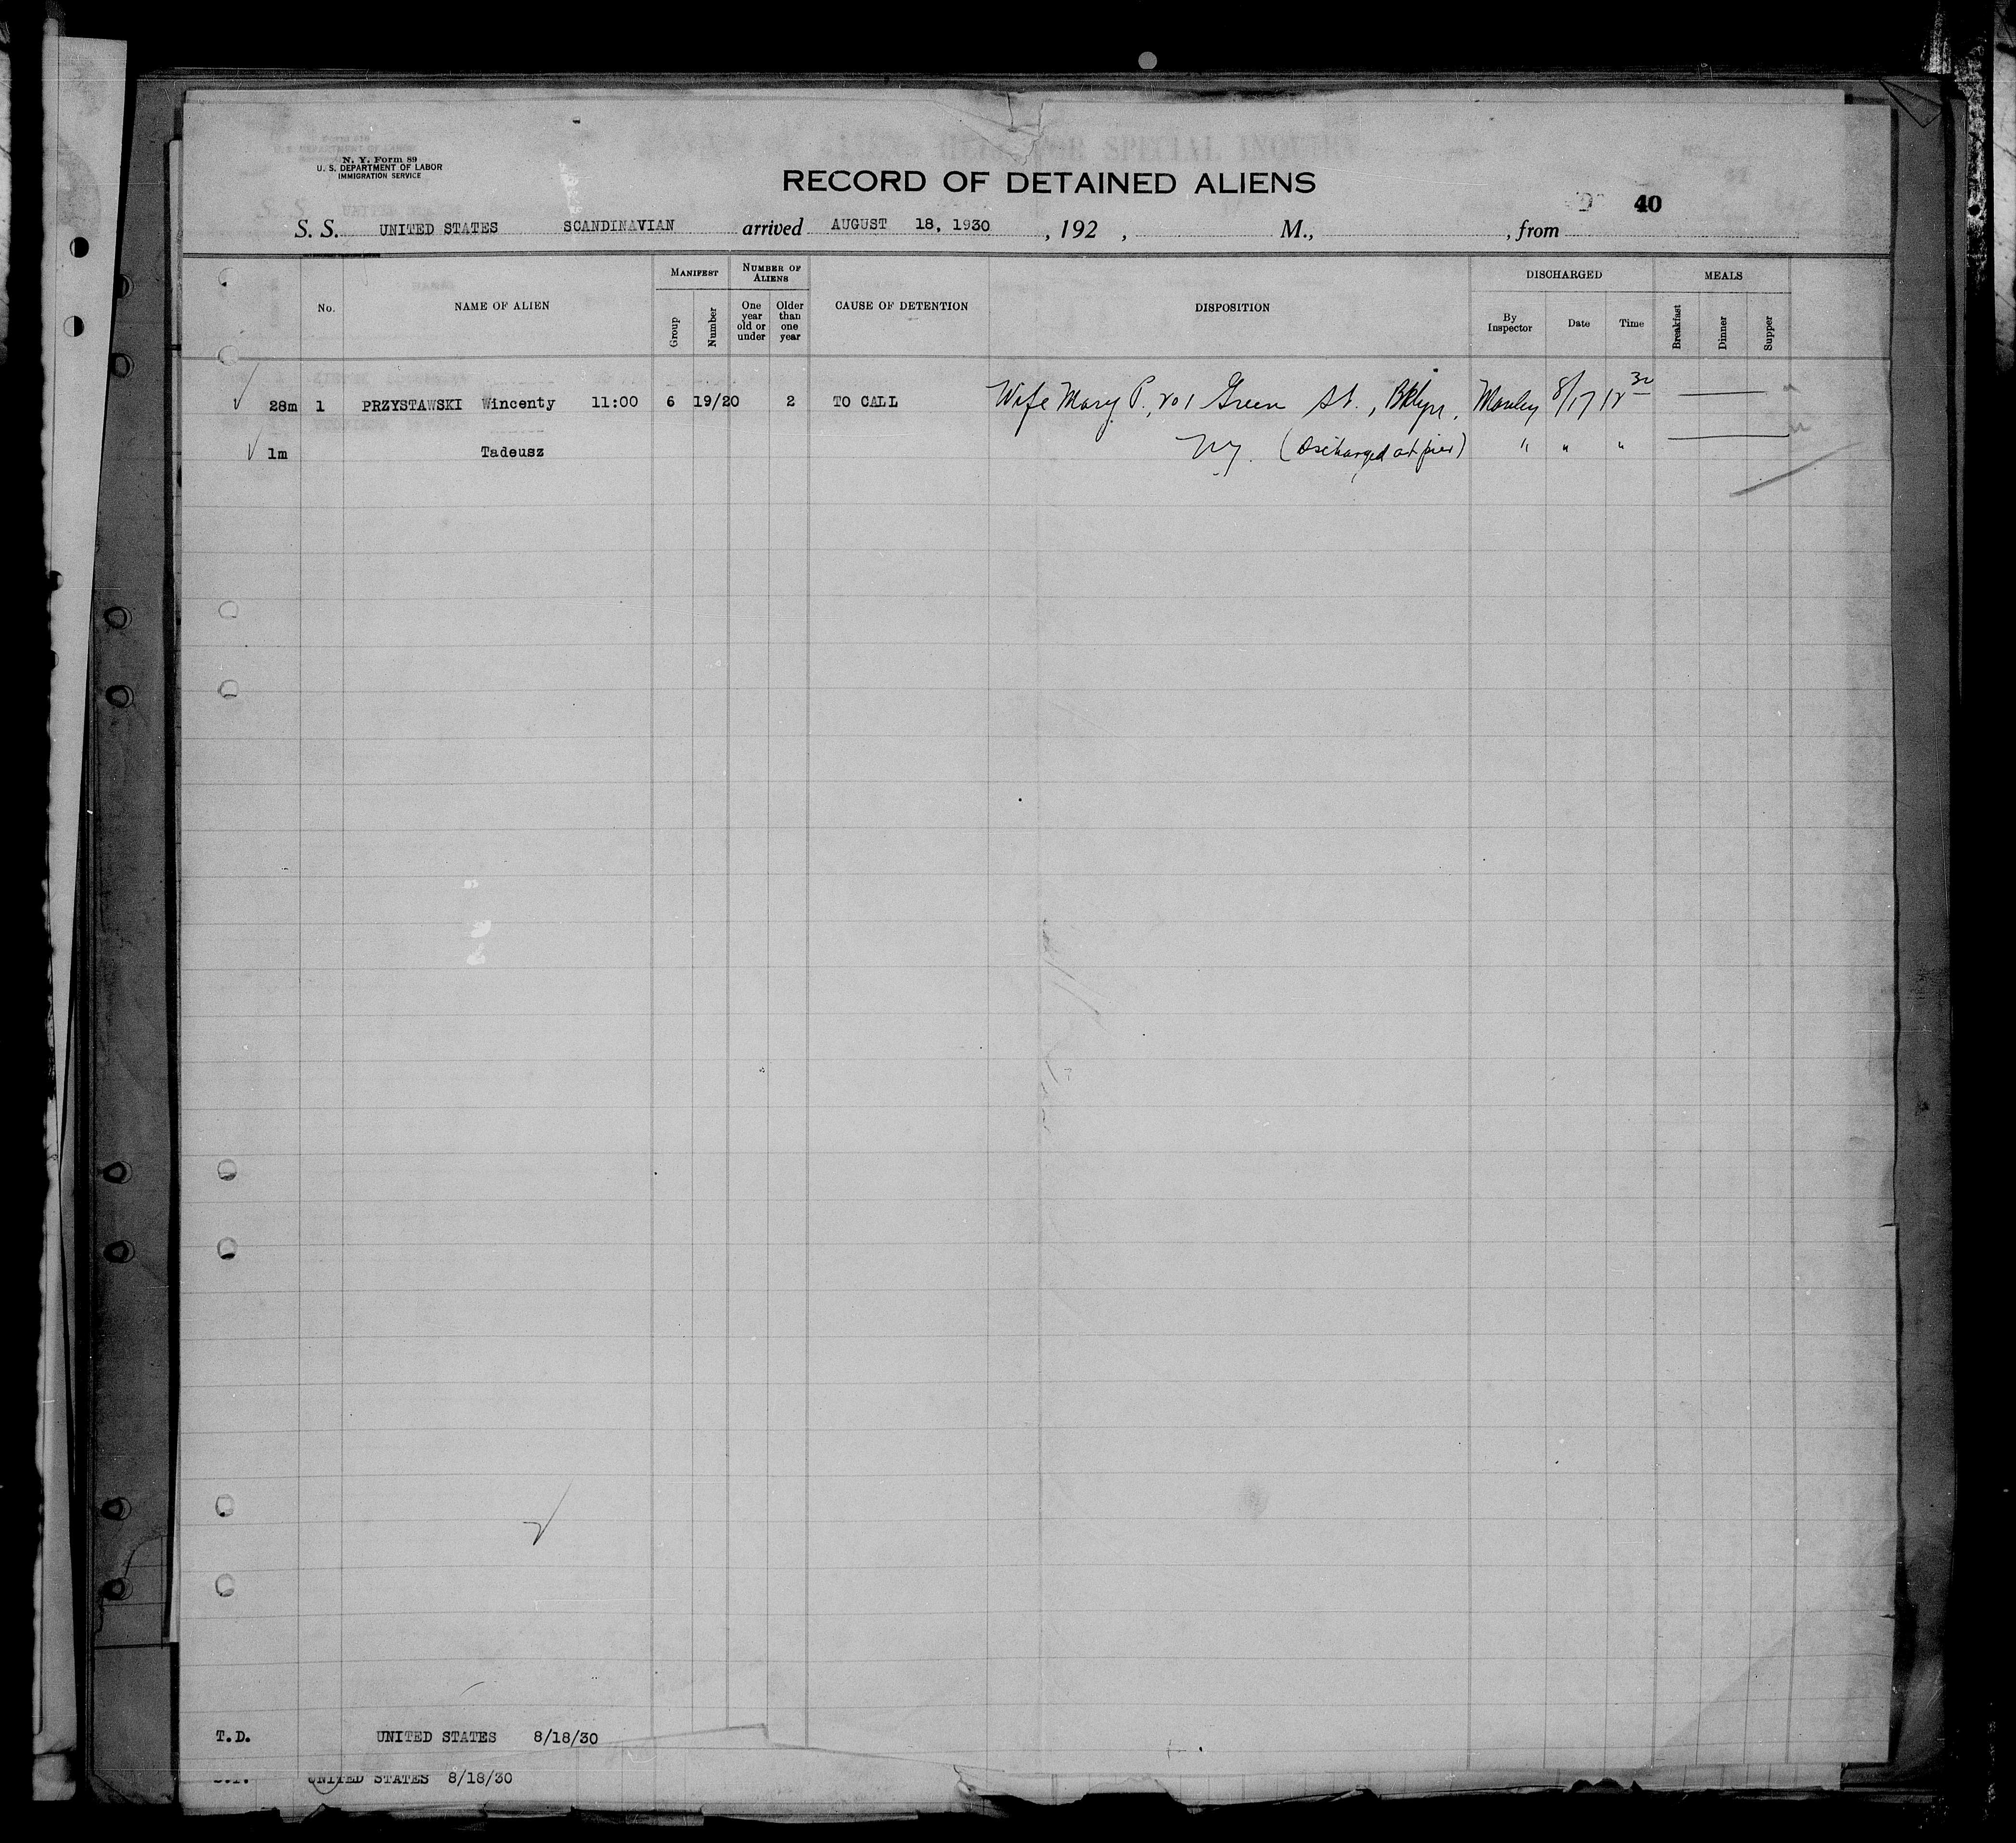 N. Y. Form 89
U. S. DEPARTMENT OF LABOR
IMMIGRATION SERVICE
RECORD OF DETAINED ALIENS
40
S. S. UNITED STATES SCANDINAVIAN arrived AUGUST 18, 1930, 192 , M., , from
No. NAME OF ALIEN MANIFEST Group Number NUMBER OF ALIENS One year old or under Older than one year CAUSE OF DETENTION DISPOSITION DISCHARGED By Inspector Date Time MEALS Breakfast Dinner Supper
28m 1 PRZYSTAWSKI Wincenty 11:00 6 19/20 2 TO CALL Wife Mary P., 201 Green St., Bklyn, 8/17 12 30
1m Tadeusz NY. (Discharged at pier) " " "
T.D. UNITED STATES 8/18/30
UNITED STATES 8/18/30